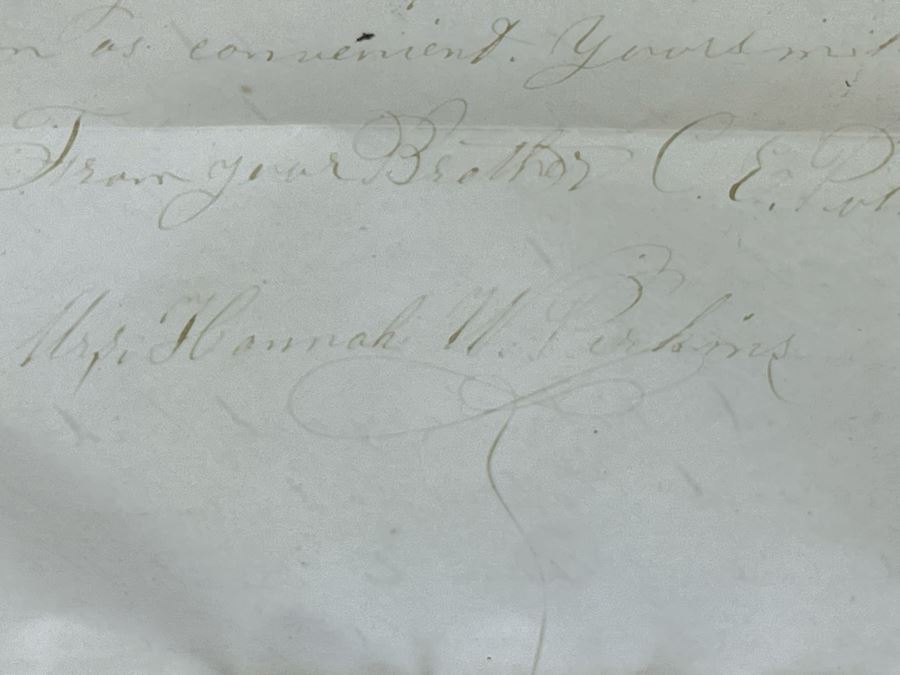 as convenient. Yours
From your Brother C. E.
Mrs. Hannah W. Perkins